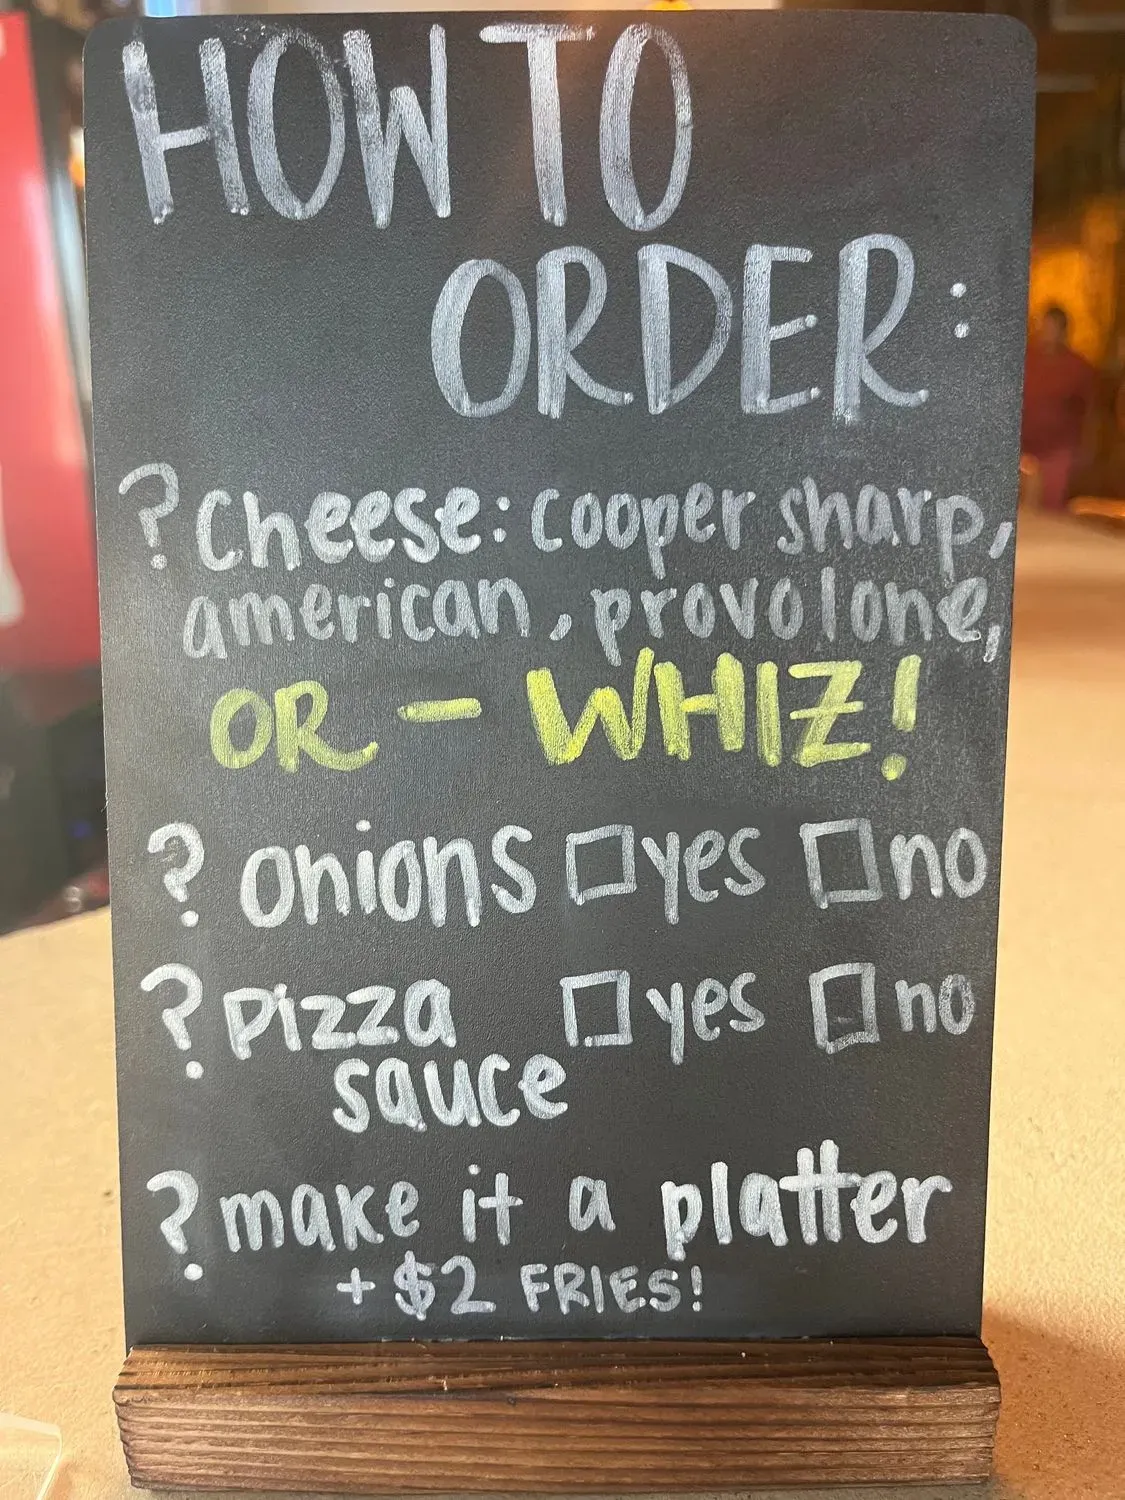 HOW TO
ORDER:
? Cheese: cooper sharp,
american, provolone,
OR - WHIZ!
? Onions □ yes □ no
? Pizza □ yes □ no
sauce
? make it a platter
+ $2 FRIES!